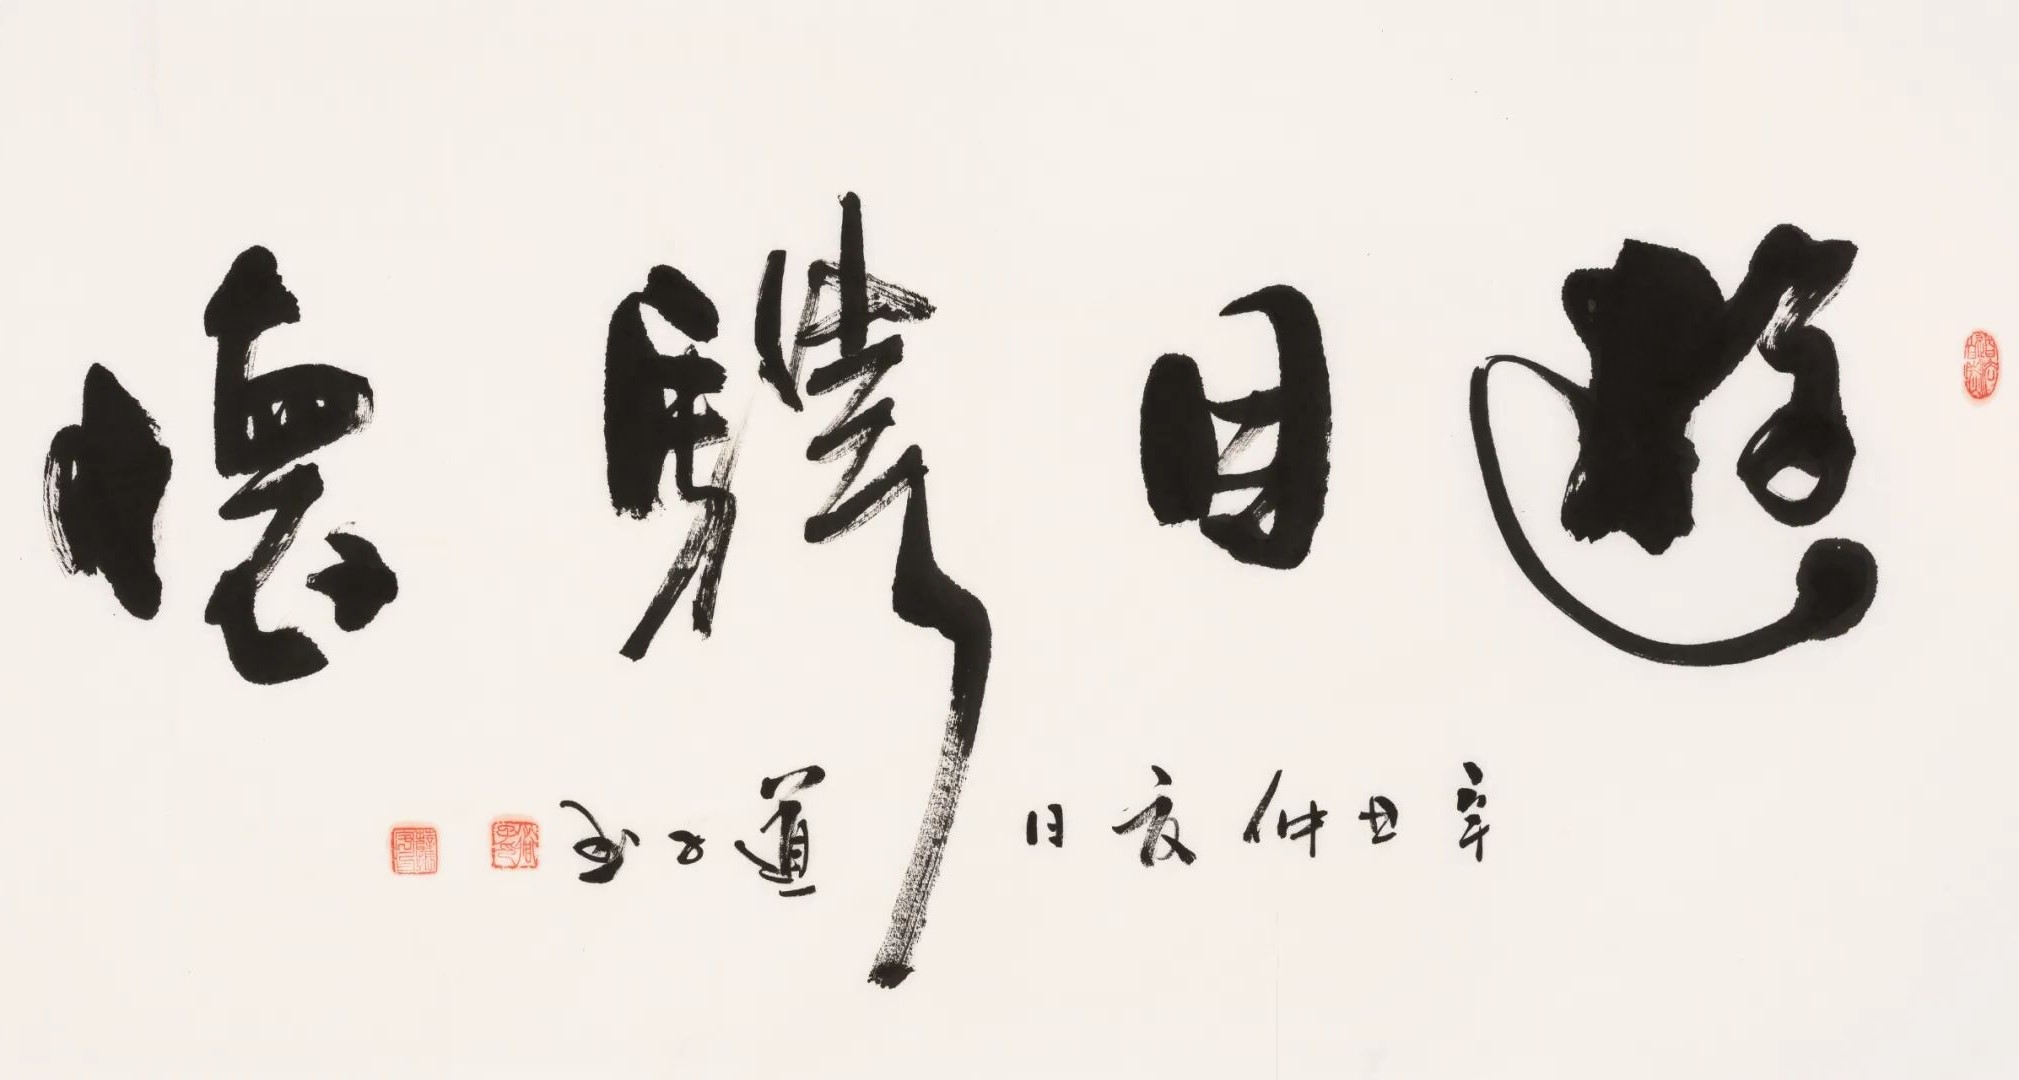 遊目騁懷
辛丑仲夏日
道